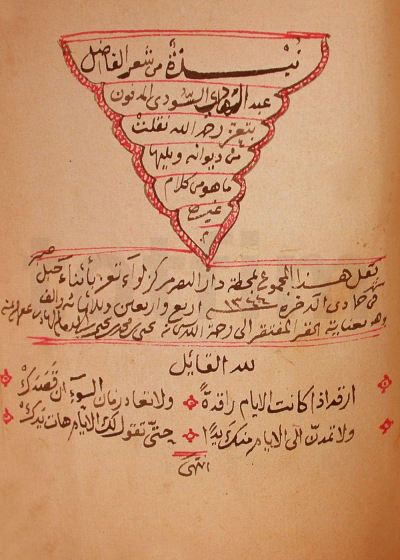 نبذة من شعر الفاضل
عبد الهادي السودي المدفون
بتعز رحمه الله نقلت
من ديوانه ويليها
ما هو من كلام
غيره
م
نقل هذا المجموع لمحطة دار النصر مركز لواء تعز بأثناء جبل صبر
من جمادى الاخرة ١٣٤٤ اربع واربعين وثلاثمائة والف
وهو بعناية الفقير المفتقر الى رحمة الله محمد
لله القائل
ارقد اذا كانت الايام راقدة ولا تعاد زمان السوء ان قصدك
ولا تمدن الى الايام منك يدا حتى تقول لك الايام هات يدك
انتهى